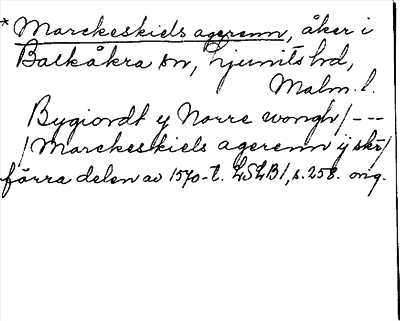 * Marckeskiels agerenn, åker i
Balkåkra sn, Ljunits hd,
Malm. l.
Bygiordt y Norre wongh/---
/Marckeskiels agerenn y skr/
förra delen av 1570-t. LSLB1, s. 258. orig.